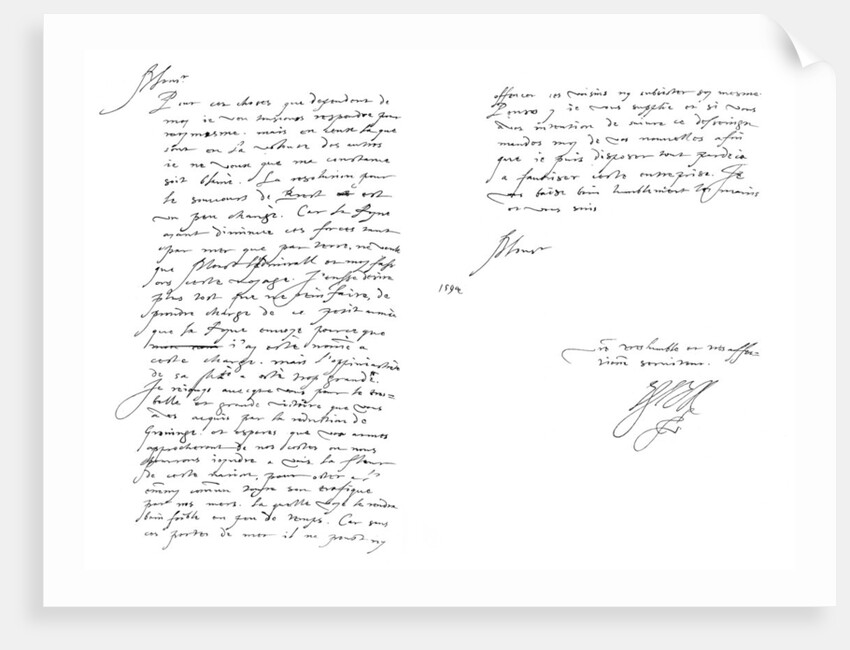 Monsr
Pour ces choses que dependent de
moy ie vou tousiours respondre pour
moymesme. mais en ceux la que
sont en la volonte des autres
ie ne veux que ma constance
soit blamé. La resolution pour
le secours de Brest est
un peu changé. Car la Royne
ayant diminuee ces forces tant
par mer que par terre, ne veult
que Monsr l'Admirall et moy fass
ons ceste voyage. J'eusse
plus tost que ne faire, de
prendre charge de ce petit armée
que la Royne envoye pource que
i'ay esté nommé a
ceste charge. mais l'oppiniastreté
de sa Mté a esté trop grande.
Je reiouys avecque vous pour le tres-
belle et grande victoire que vous
aves acquis par la reduction de
Groninge. et esperes que vos armes
approcheront de nos costes ou nous
pourrons ioindre a vous la fleur
de ceste nation, pour oster a l'
ennemy commun toute son trafique
par nos mers. la quelle le rendra
bien foible en peu de temps. Car sans
ces portes de mer il ne peust ny
offencer ses voisins ny subsister soy mesme.
Pource ie vous supplie si vous
aves intention de suivre ce desseing
mandes moy de vos nouvelles afin
que ie puis disposer tout pardeca
a favoriser ceste entreprise. Je
vous baise bien humblement les mains
et vous suis
Monsr
1594
vre treshumble et tresaffec-
tionné serviteur.